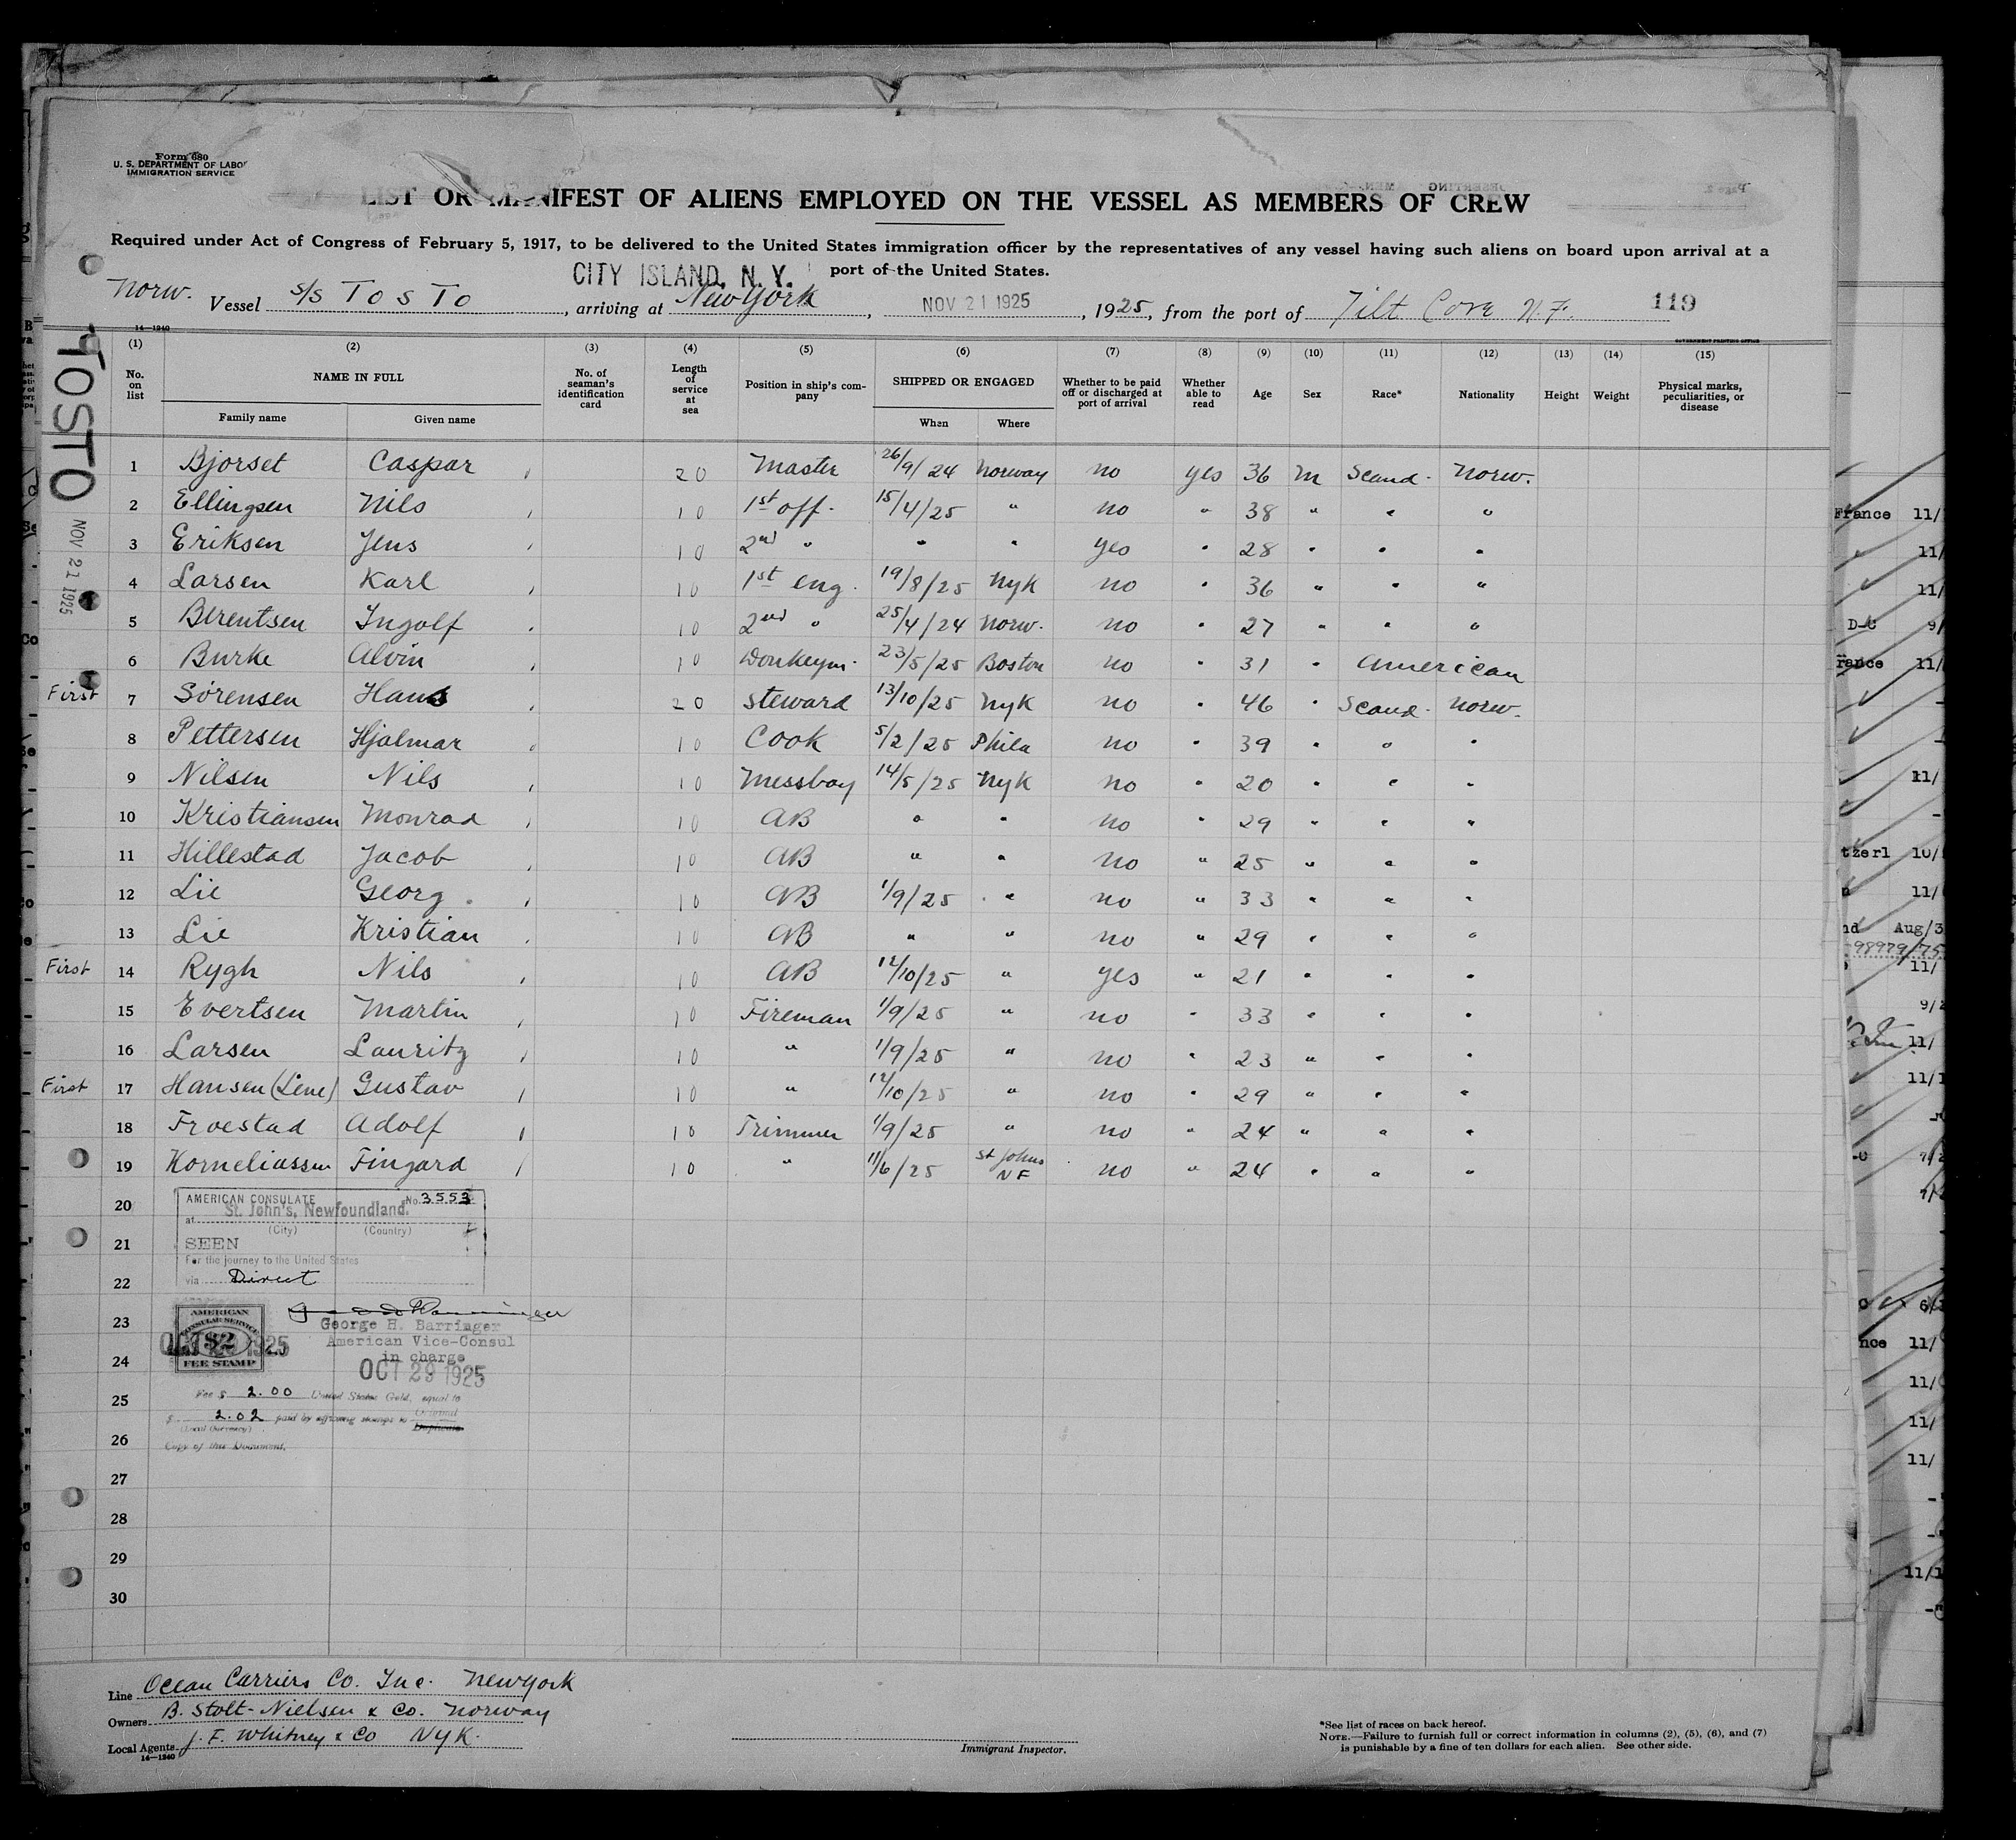 Form 680
U. S. DEPARTMENT OF LABOR
IMMIGRATION SERVICE
LIST OR MANIFEST OF ALIENS EMPLOYED ON THE VESSEL AS MEMBERS OF CREW
Required under Act of Congress of February 5, 1917, to be delivered to the United States immigration officer by the representatives of any vessel having such aliens on board upon arrival at a
port of the United States.
CITY ISLAND, N. Y.
Norw. Vessel S/S TOSTO, arriving at New York, NOV 21 1925, 1925, from the port of Tilt Cove N.F. 119
14—1240
TOSTO NOV 21 1925
(1) (2) (3) (4) (5) (6) (7) (8) (9) (10) (11) (12) (13) (14) (15)
No. on list NAME IN FULL No. of seaman's identification card Length of service at sea Position in ship's company SHIPPED OR ENGAGED Whether to be paid off or discharged at port of arrival Whether able to read Age Sex Race* Nationality Height Weight Physical marks, peculiarities, or disease
Family name Given name When Where
1 Bjorset Caspar 20 Master 26/9/24 Norway no yes 36 M Scand. Norw.
2 Ellingsen Nils 10 1st off. 15/4/25 " no " 38 " " "
3 Eriksen Jens 10 2nd " " " yes " 28 " " "
4 Larsen Karl 10 1st eng. 19/8/25 Nyk no " 36 " " "
5 Berentsen Ingolf 10 2nd " 25/4/24 Norw. no " 27 " " "
6 Burke Alvin 10 Donkeym. 23/5/25 Boston no " 31 " American
First 7 Sörensen Hans 20 Steward 13/10/25 Nyk no " 46 " Scand. Norw.
8 Pettersen Hjalmar 10 Cook 5/2/25 Phila no " 39 " " "
9 Nilsen Nils 10 Messboy 14/5/25 Nyk no " 20 " " "
10 Kristiansen Monrad 10 AB " " no " 29 " " "
11 Hillestad Jacob 10 AB " " no " 25 " " "
12 Lie Georg. 10 AB 1/9/25 " no " 33 " " "
13 Lie Kristian 10 AB " " no " 29 " " "
First 14 Rygh Nils 10 AB 12/10/25 " yes " 21 " " "
15 Evertsen Martin 10 Fireman 1/9/25 " no " 33 " " "
16 Larsen Lauritz 10 " 1/9/25 " no " 23 " " "
First 17 Hansen (Lene) Gustav 10 " 12/10/25 " no " 29 " " "
18 Froestad Adolf 10 Trimmer 1/9/25 " no " 24 " " "
19 Korneliassen Fingard 10 " 11/6/25 St Johns NF no " 24 " " "
20
21
22
23
24
25
26
27
28
29
30
AMERICAN CONSULATE No. 3553
at St. John's, Newfoundland.
(City) (Country)
SEEN
For the journey to the United States
via Direct
AMERICAN CONSULAR SERVICE $2 FEE STAMP
George H. Barringer
American Vice-Consul
in charge
OCT 29 1925
Fee $ 2.00 United States Gold, equal to
$ 2.02 paid by affixing stamps to Original
(Local Currency) Duplicate
Copy of this Document.
Line Ocean Carriers Co. Inc. New York
Owners B. Stolt-Nielsen & Co. Norway
Local Agents J. F. Whitney & Co NYK.
14—1240
Immigrant Inspector.
*See list of races on back hereof.
NOTE.—Failure to furnish full or correct information in columns (2), (5), (6), and (7)
is punishable by a fine of ten dollars for each alien. See other side.